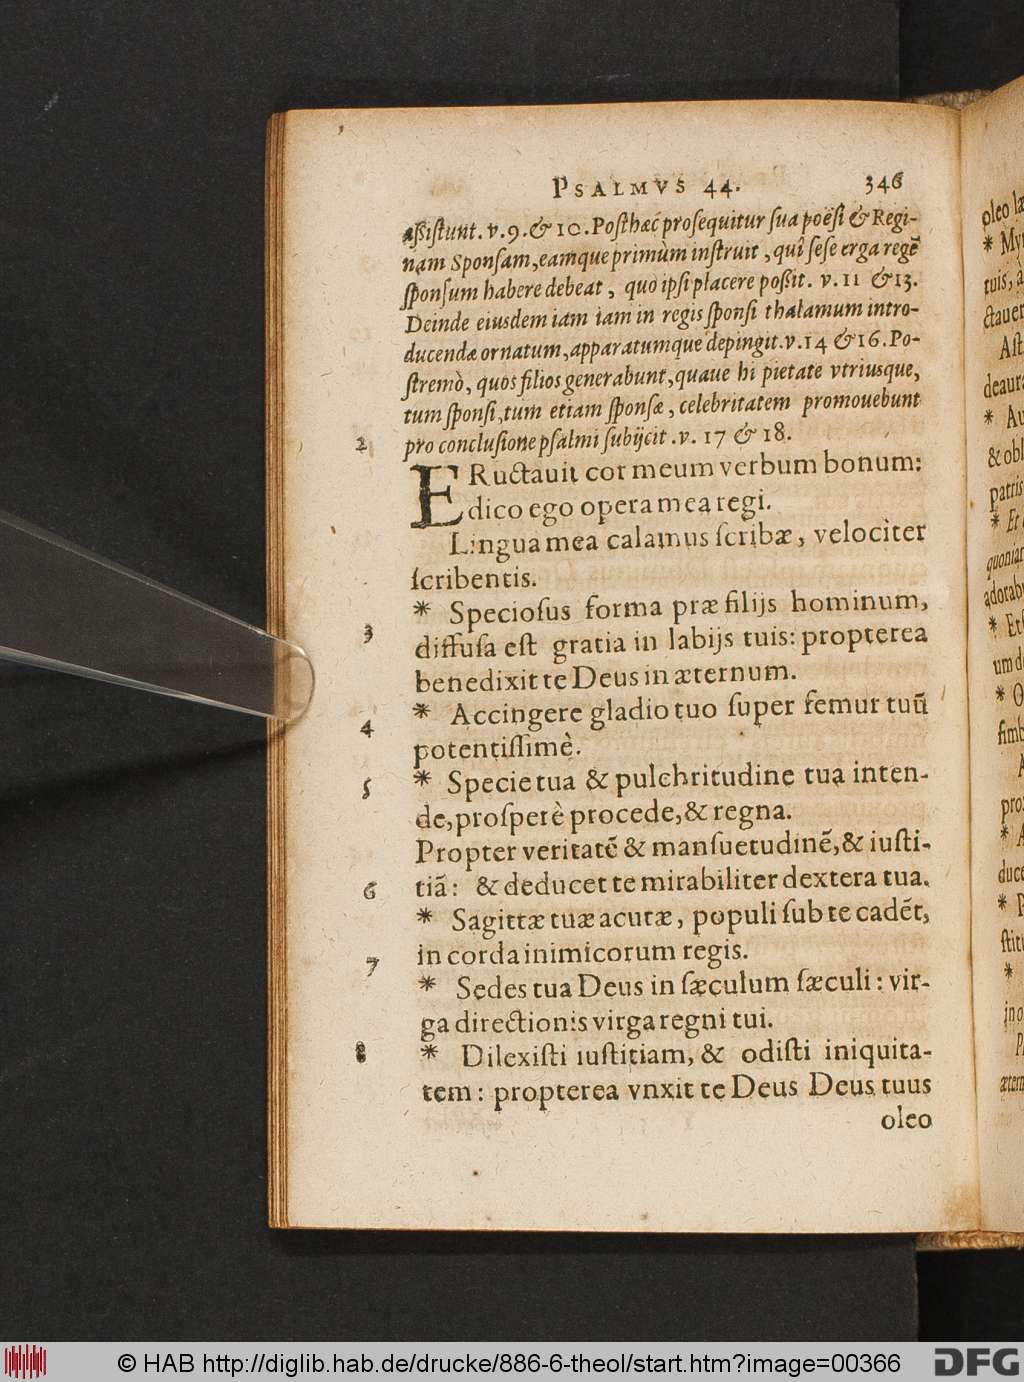 PSALMVS 44. 346
aſsiſtunt. v. 9. & 10. Poſthæc proſequitur ſua poëſi & Regi-
nam Sponſam, eamque primùm inſtruit, quî ſeſe erga regē
ſponſum habere debeat, quo ipſi placere poßit. v. 11 & 13.
Deinde eiusdem iam iam in regis ſponſi thalamum intro-
ducendæ ornatum, apparatumque depingit. v. 14 & 16. Po-
ſtremò, quos filios generabunt, quaue hi pietate vtriusque,
tum ſponſi, tum etiam ſponſæ, celebritatem promouebunt
pro concluſione pſalmi ſubijcit. v. 17 & 18.
2 ERuctauit cor meum verbum bonum:
dico ego opera mea regi.
Lingua mea calamus ſcribæ, velociter
ſcribentis.
3 * Specioſus forma præ filijs hominum,
diffuſa eſt gratia in labijs tuis: propterea
benedixit te Deus in æternum.
4 * Accingere gladio tuo ſuper femur tuū
potentiſſimè.
5 * Specie tua & pulchritudine tua inten-
de, proſperè procede, & regna.
Propter veritatē & manſuetudinē, & iuſti-
6 tiã: & deducet te mirabiliter dextera tua.
* Sagittæ tuæ acutæ, populi ſub te cadēt,
7 in corda inimicorum regis.
* Sedes tua Deus in ſæculum ſæculi: vir-
ga directionis virga regni tui.
8 * Dilexiſti iuſtitiam, & odiſti iniquita-
tem: propterea vnxit te Deus Deus tuus
oleo
oleo
* Myr
tuis, à
ctauer
Aſt
deaura
* Au
& obl
patris
* Et
quoniam
adorab
* Et
um d
* O
fimb
A
prox
* A
duce
* P
ſtit
*
in o
P
ætern
© HAB http://diglib.hab.de/drucke/886-6-theol/start.htm?image=00366
DFG